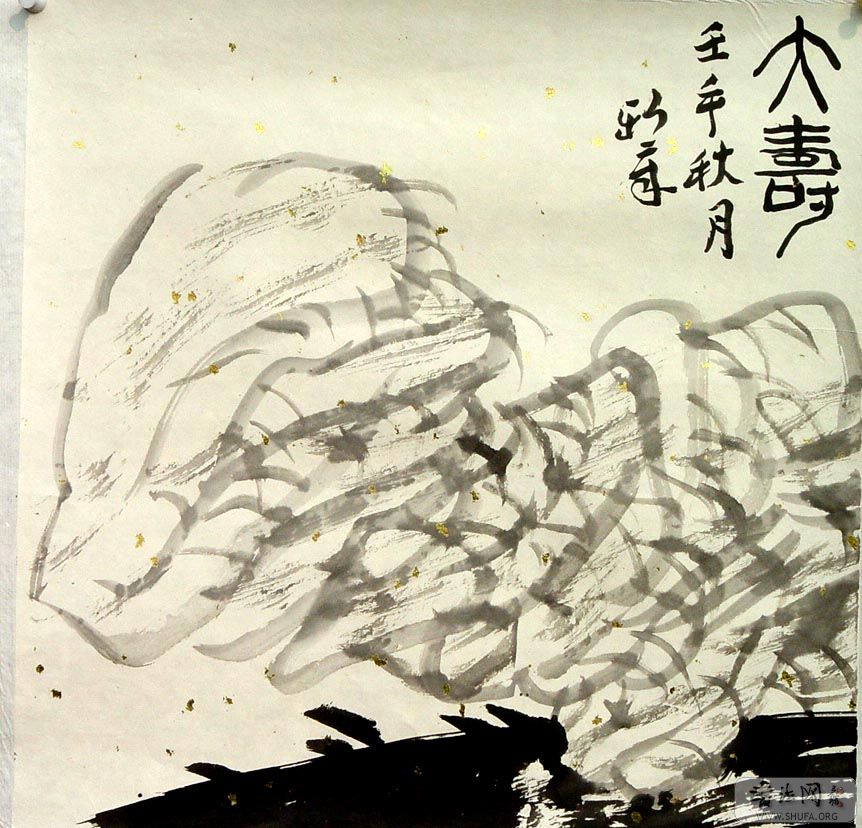 大壽
壬午秋月
書法网
WWW.SHUFA.ORG